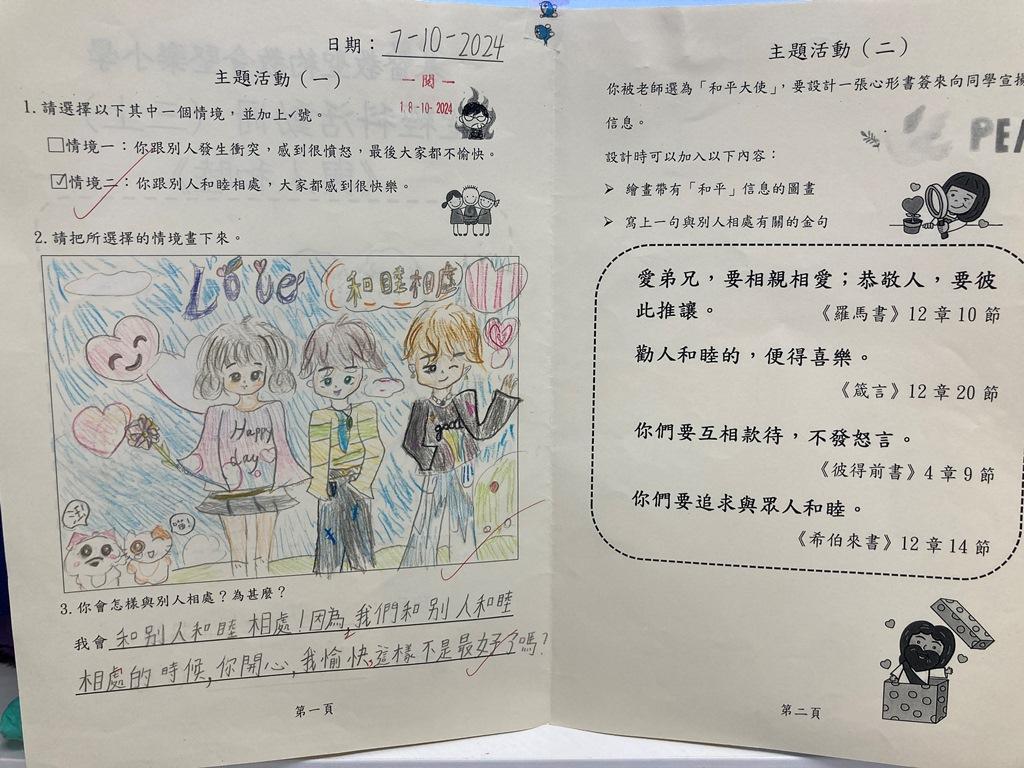 日期：7-10-2024
主題活動（一）
一閱一
18-10-2024
1.請選擇以下其中一個情境，並加上✓號。
□情境一：你跟別人發生衝突，感到很憤怒，最後大家都不愉快。
☑情境二：你跟別人和睦相處，大家都感到很快樂。
2.請把所選擇的情境畫下來。
Love 和睦相處
Happy
day
good
3.你會怎樣與別人相處？為甚麼？
我會 和別人和睦相處！因為，我們和別人和睦
相處的時候，你開心，我愉快，這樣不是最好了嗎？
第一頁
主題活動（二）
你被老師選為「和平大使」，要設計一張心形書簽來向同學宣揚
信息。
PEA
設計時可以加入以下內容：
➢ 繪畫帶有「和平」信息的圖畫
➢ 寫上一句與別人相處有關的金句
愛弟兄，要相親相愛；恭敬人，要彼
此推讓。 《羅馬書》12 章 10 節
勸人和睦的，便得喜樂。
《箴言》12 章 20 節
你們要互相款待，不發怨言。
《彼得前書》4 章 9 節
你們要追求與眾人和睦。
《希伯來書》12 章 14 節
第二頁